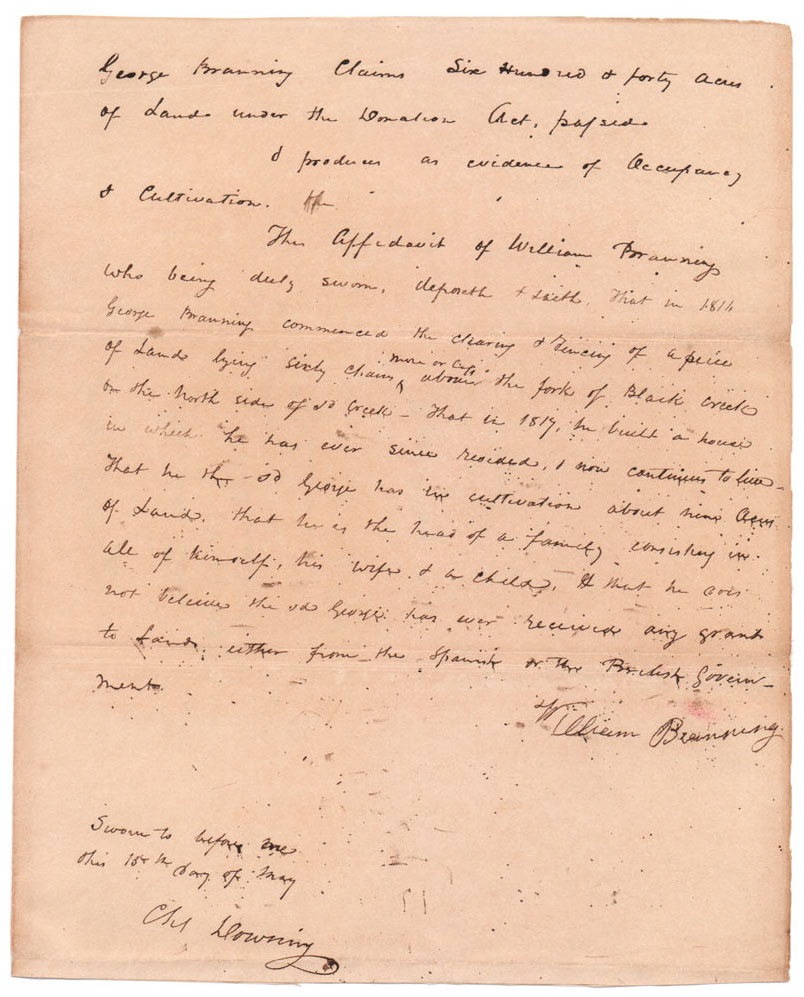 George Branning Claims Six Hundred & forty Acres
of Lands under the Donation Act, passed
& produces as evidence of Occupancy
& Cultivation. the
The Affidavit of William Branning
who being duly sworn, deposeth & saith, That in 1816
George Branning commenced the clearing & Fencing of a peice
more or less
of Lands lying sixty chains ^ above the fork of Black Creek
on the North side of sd Creek – That in 1817, he built a house
in which he has ever since resided, & now continues to live –
That he the sd George has in cultivation about nine Acres
of Lands, that he is the head of a family consisting in
all of himself, his wife & a child, & that he does
not beleive the sd George has ever received any grant
to Lands, either from the Spanish or the British Govern-
ment.
William Branning
Sworn to before me
this 15th Day of May
Chs Downing